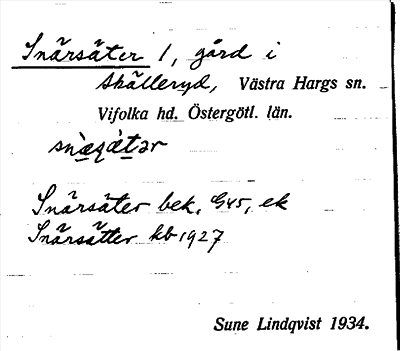 Snärsäter 1, gård i
Skälleryd, Västra Hargs sn.
Vifolka hd. Östergötl. län.
Snärsäter bek. G45, ek
Snärsätter kb 1927
Sune Lindqvist 1934.